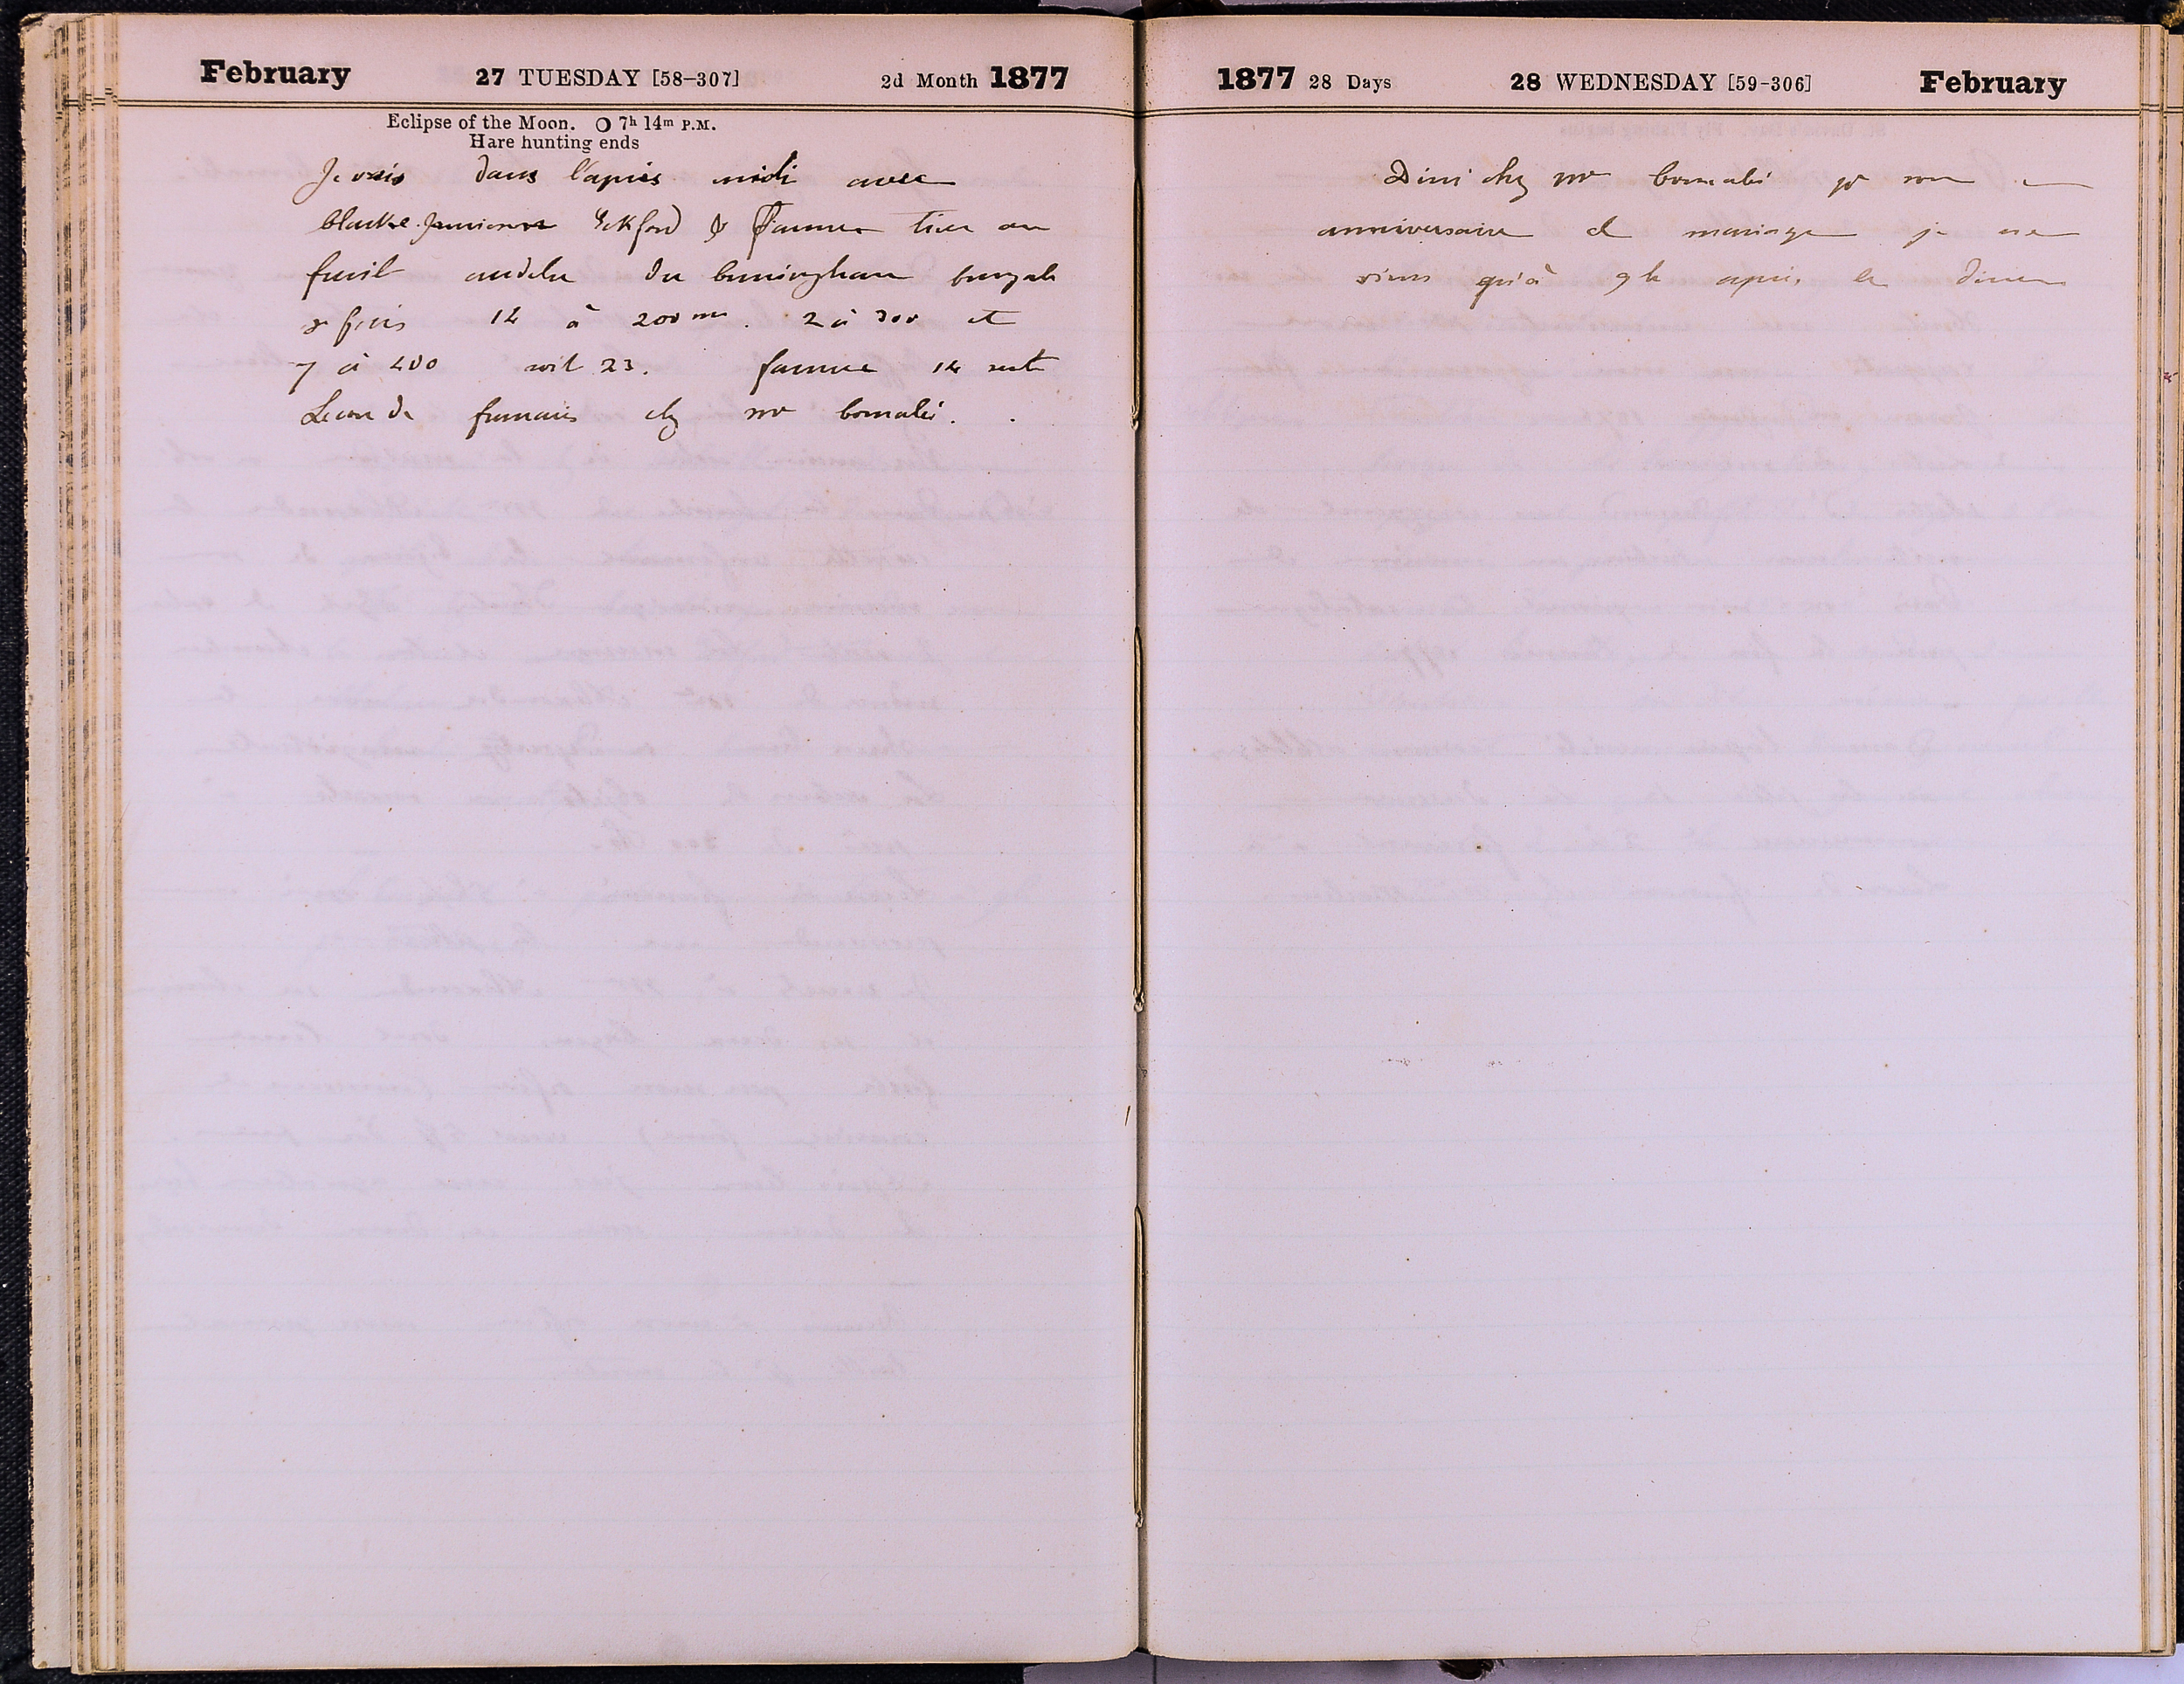 February 27 TUESDAY [58-307] 2d Month 1877
Eclipse of the Moon. O 7h 14m P.M.
Hare hunting ends
Je vais dans l'après midi avec
blacke Eckford & Farmer tirer au
fusil audela du bungalo
je fais 12 à 200 m. 2 à 300 et
7 à 400 soit 23. farmer 14 seulet
Lecon de francais chez mr
1877 28 Days 28 WEDNESDAY [59-306] February
Dini chez mr pr son
anniversaire de mariage je ne
viens qu'à 9 h après le diner